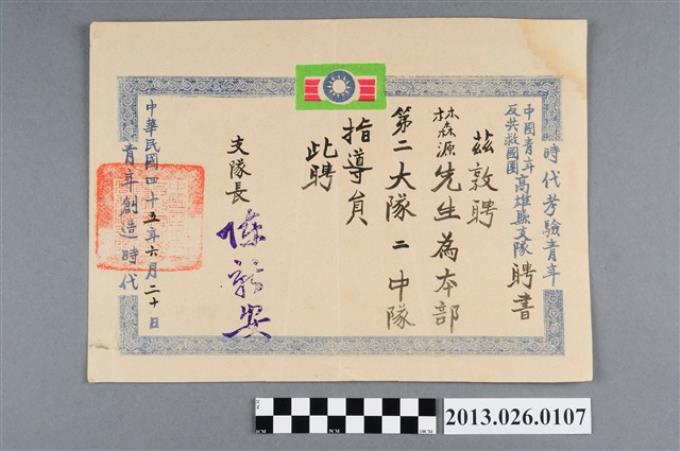 時代考驗青年
中國青年反共救國團高雄縣支隊聘書
茲敦聘
林森源先生為本部
第二大隊二中隊
指導員
此聘
支隊長
陳新安
中華民國四十五年六月二十日
青年創造時代
2013.026.0107